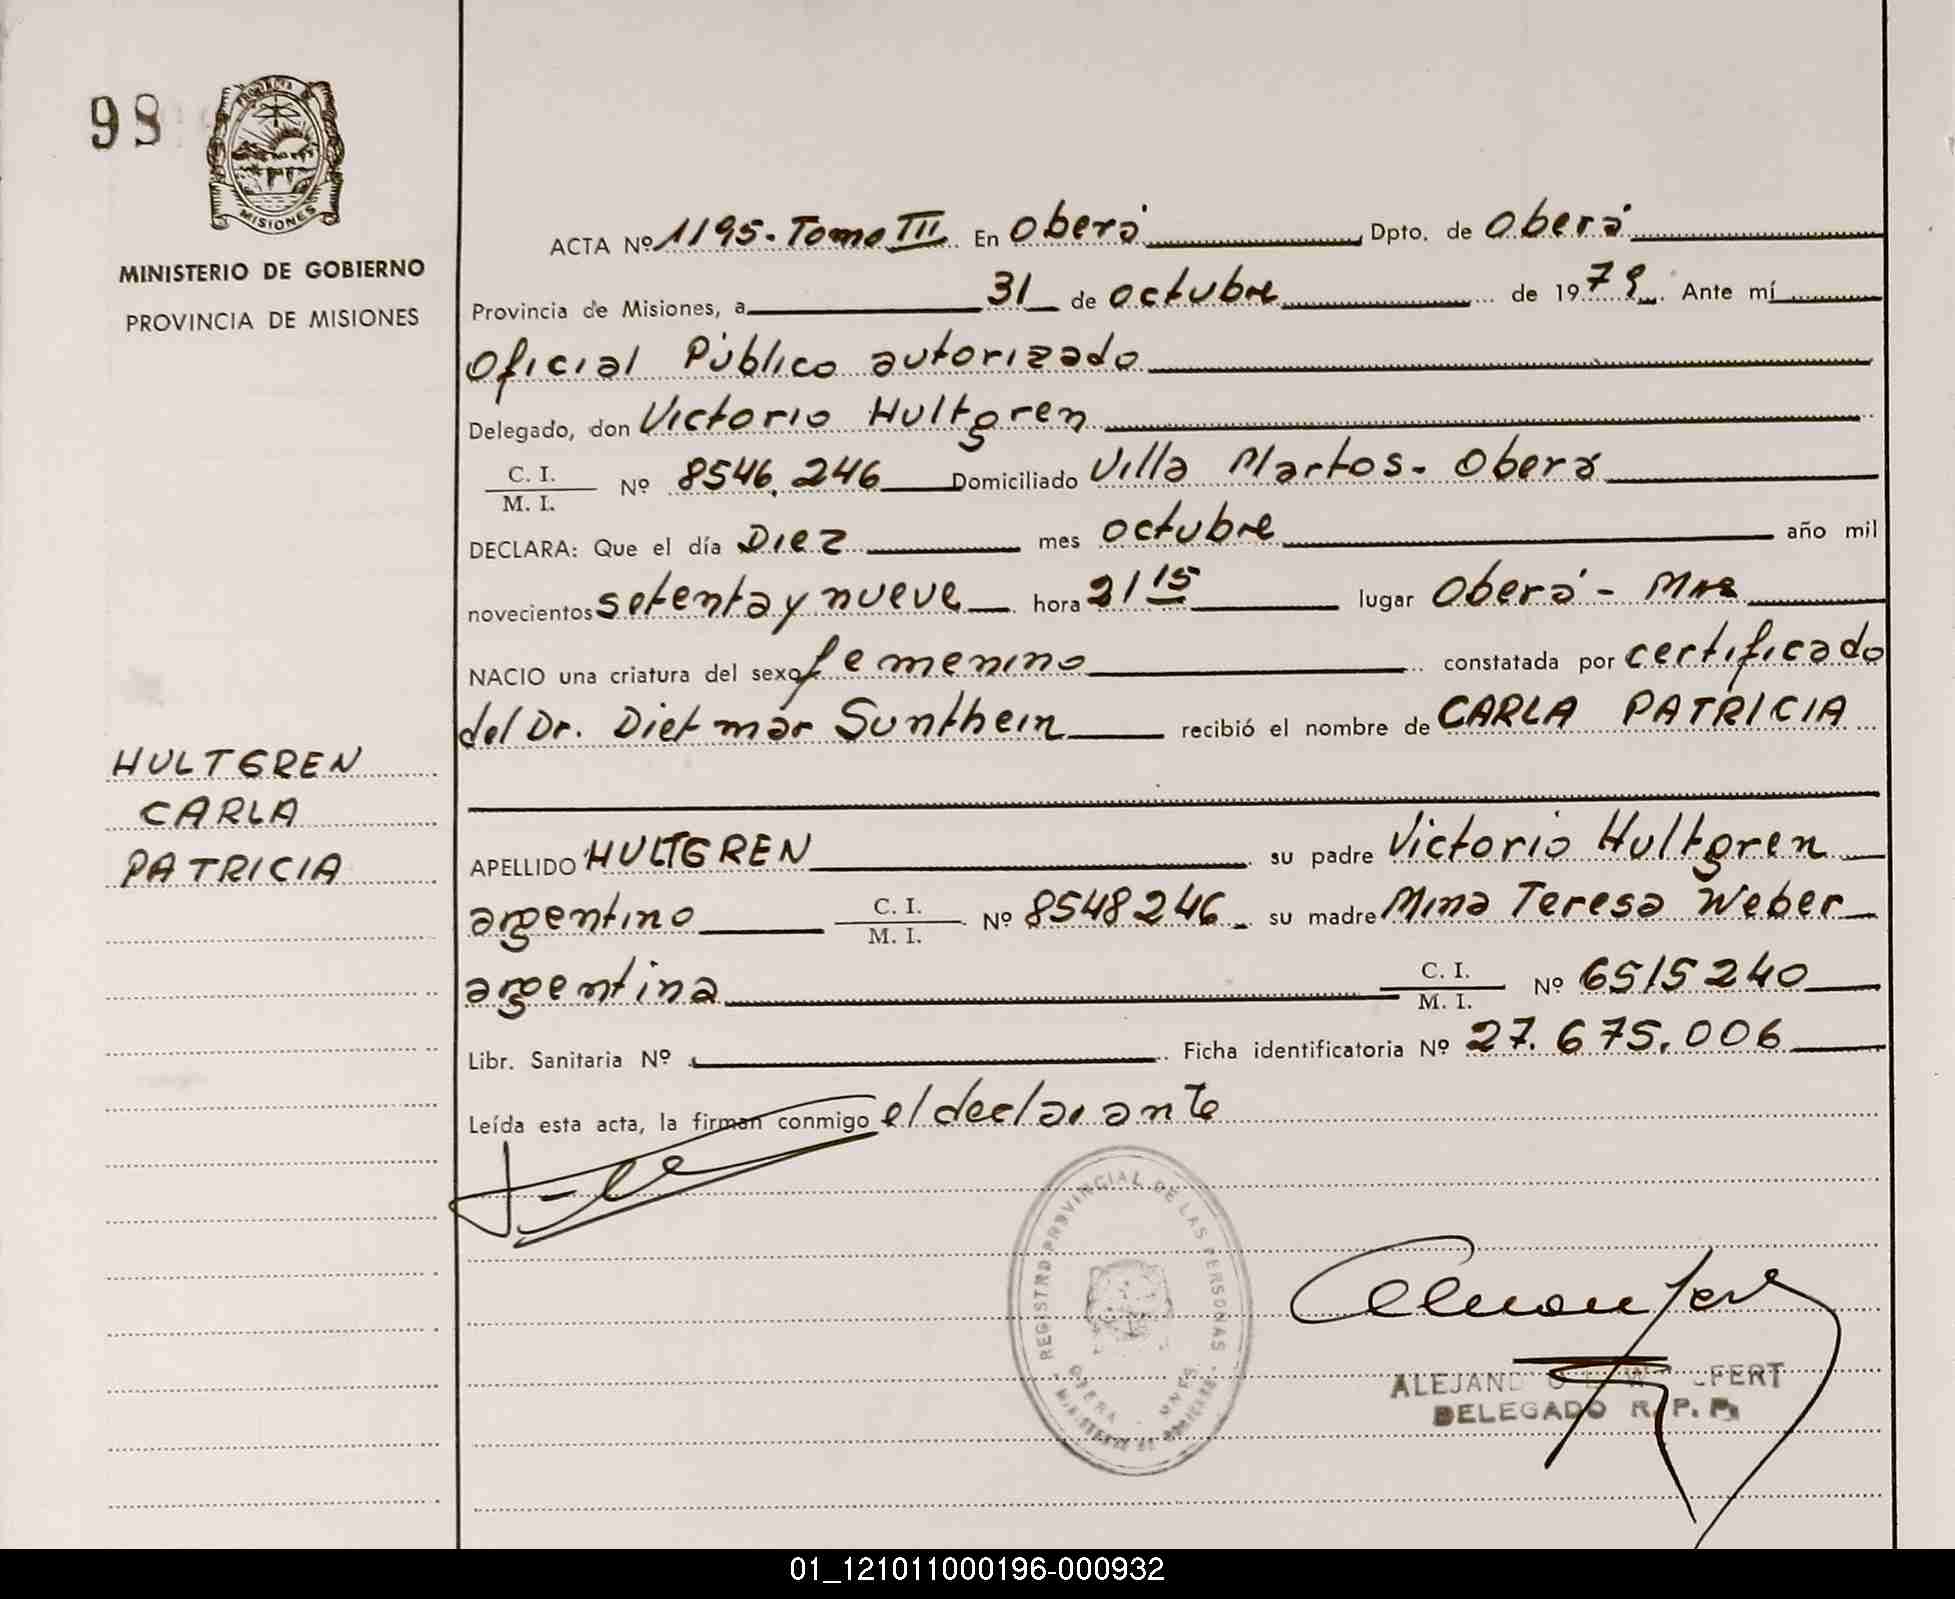 98
PROVINCIA DE
MISIONES
MINISTERIO DE GOBIERNO
PROVINCIA DE MISIONES
HULTGREN
CARLA
PATRICIA
ACTA Nº 1195 - Tomo III En Oberá Dpto. de Oberá
Provincia de Misiones, a 31 de octubre de 1979 Ante mí
Oficial Público autorizado
Delegado, don Victorio Hultgren
C. I. / M. I. Nº 8546.246 Domiciliado Villa Martos - Oberá
DECLARA: Que el día Diez mes octubre año mil
novecientos setenta y nueve hora 21 15 lugar Oberá - Mnes
NACIO una criatura del sexo femenino constatada por certificado
del Dr. Dietmar Sunthein recibió el nombre de CARLA PATRICIA
APELLIDO HULTGREN su padre Victorio Hultgren
argentino C. I. / M. I. Nº 8548246 su madre Mina Teresa Weber
argentina C. I. / M. I. Nº 6515240
Libr. Sanitaria Nº Ficha identificatoria Nº 27.675.006
Leída esta acta, la firman conmigo el declarante
REGISTRO PROVINCIAL DE LAS PERSONAS
OBERA - MNES
MINISTERIO DE GOBIERNO
DELEGADO R. P. P.
01_121011000196-000932